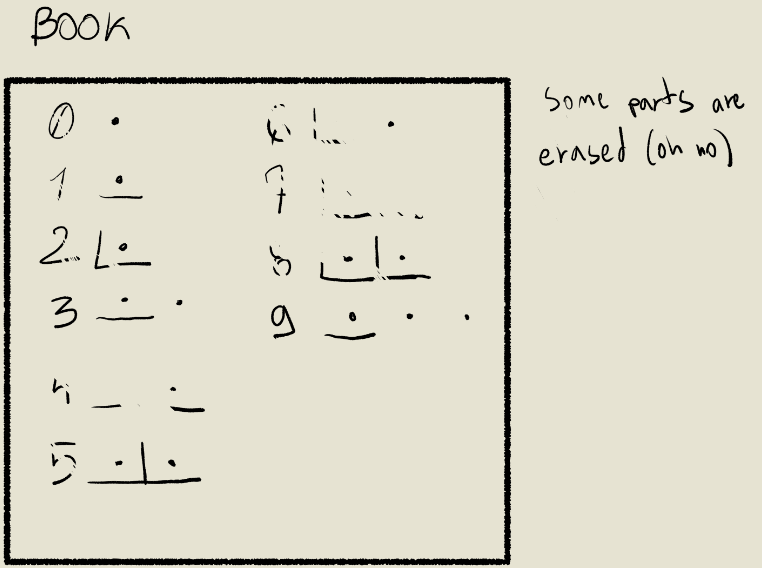 BOOK
0 .
1
2
3
4
5
6
7
8
9
Some parts are
erased (oh no)